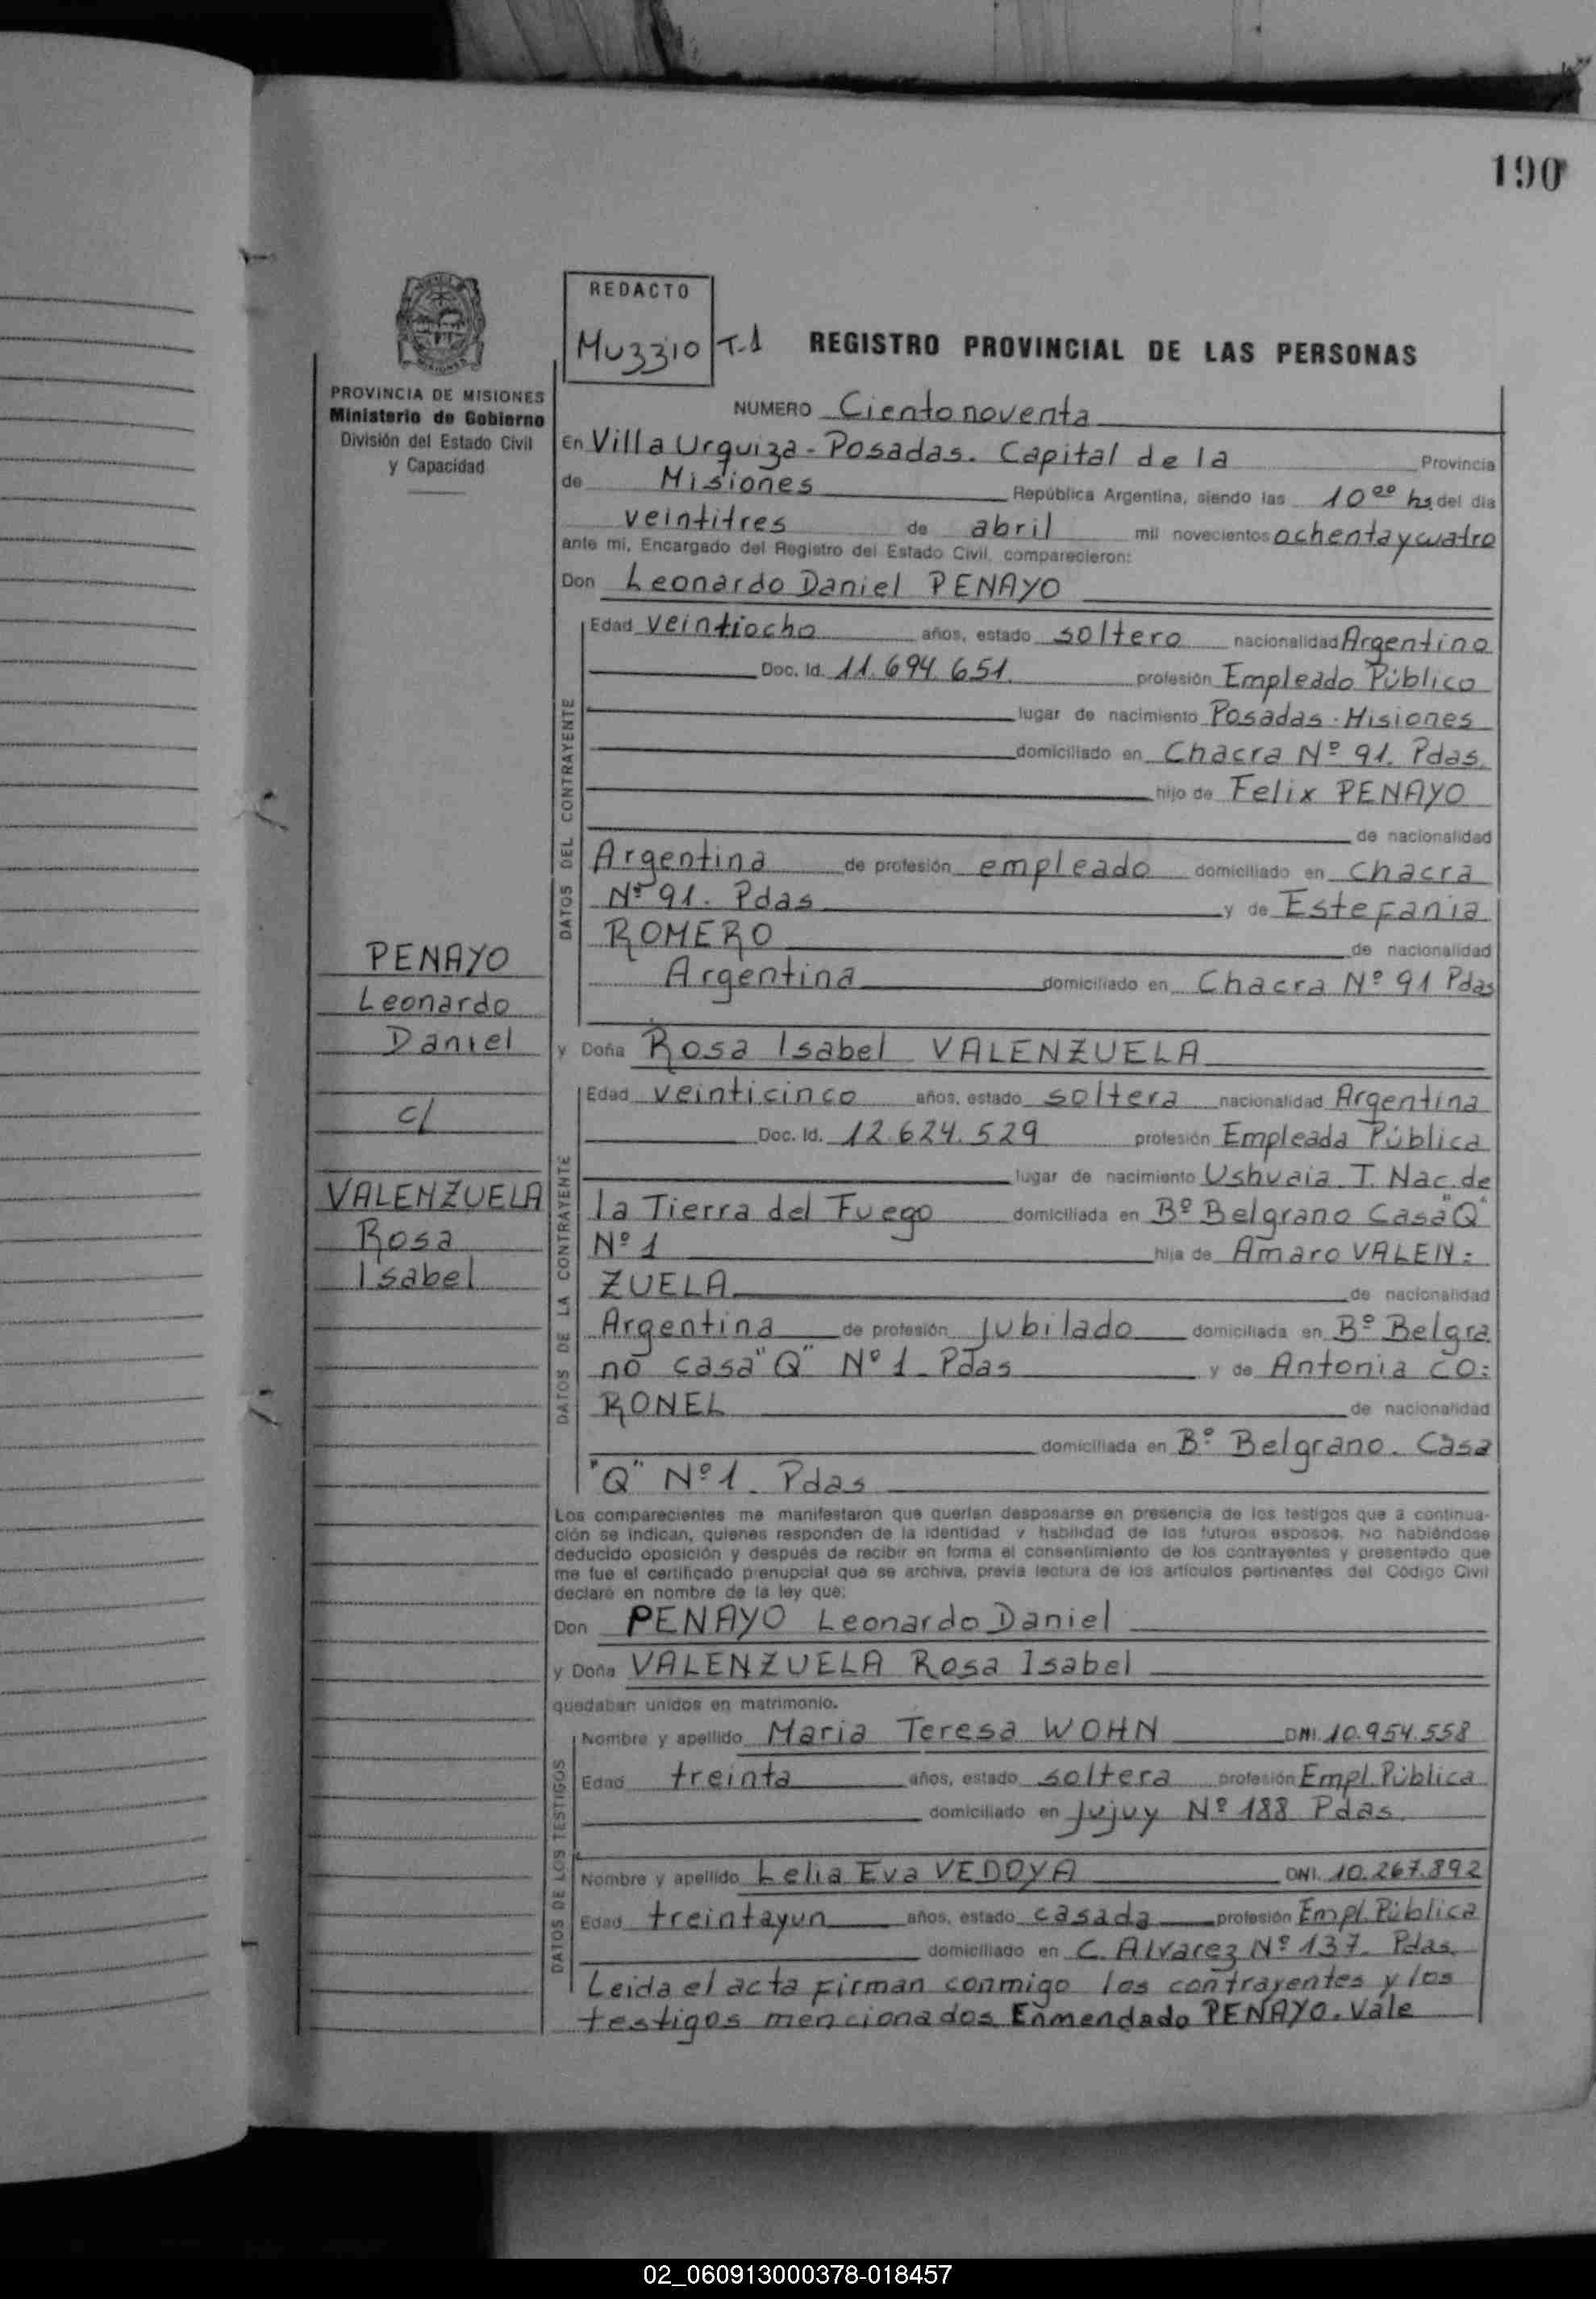 190
REDACTO
Muzzio T.1
REGISTRO PROVINCIAL DE LAS PERSONAS
PROVINCIA DE MISIONES
Ministerio de Gobierno
División del Estado Civil
y Capacidad
NUMERO Ciento noventa
En Villa Urquiza - Posadas. Capital de la Provincia
de Misiones República Argentina, siendo las 10⁰⁰ hs del día
veintitres de abril mil novecientos ochenta y cuatro
ante mi, Encargado del Registro del Estado Civil, comparecieron:
Don Leonardo Daniel PENAYO
DATOS DEL CONTRAYENTE
Edad veintiocho años, estado soltero nacionalidad Argentino
Doc. Id. 11.694.651. profesión Empleado Público
lugar de nacimiento Posadas - Misiones
domiciliado en Chacra Nº 91. Pdas.
hijo de Felix PENAYO
de nacionalidad
Argentina de profesión empleado domiciliado en Chacra
Nº 91. Pdas y de Estefania
ROMERO de nacionalidad
Argentina domiciliado en Chacra Nº 91 Pdas
PENAYO
Leonardo
Daniel
c/
VALENZUELA
Rosa
Isabel
y Doña Rosa Isabel VALENZUELA
DATOS DE LA CONTRAYENTE
Edad veinticinco años, estado soltera nacionalidad Argentina
Doc. Id. 12.624.529 profesión Empleada Pública
lugar de nacimiento Ushuaia T. Nac. de
la Tierra del Fuego domiciliada en Bº Belgrano Casa "Q"
Nº 1 hija de Amaro VALEN=
ZUELA de nacionalidad
Argentina de profesión jubilado domiciliada en Bº Belgra
no casa "Q" Nº 1. Pdas y de Antonia CO=
RONEL de nacionalidad
domiciliada en Bº Belgrano. Casa
"Q" Nº 1. Pdas
Los comparecientes me manifestaron que querían desposarse en presencia de los testigos que a continua-
ción se indican, quienes responden de la identidad y habilidad de los futuros esposos. No habiéndose
deducido oposición y después de recibir en forma el consentimiento de los contrayentes y presentado que
me fue el certificado prenupcial que se archiva, previa lectura de los artículos pertinentes del Código Civil
declaré en nombre de la ley que:
Don PENAYO Leonardo Daniel
y Doña VALENZUELA Rosa Isabel
quedaban unidos en matrimonio.
DATOS DE LOS TESTIGOS
Nombre y apellido Maria Teresa WOHN DNI. 10.954.558
Edad treinta años, estado soltera profesión Empl. Pública
domiciliado en Jujuy Nº 188 Pdas.
Nombre y apellido Lelia Eva VEDOYA DNI. 10.267.892
Edad treintayun años, estado casada profesión Empl. Pública
domiciliado en C. Alvarez Nº 137. Pdas.
Leida el acta firman conmigo los contrayentes y los
testigos mencionados Enmendado PENAYO. Vale
02_060913000378-018457